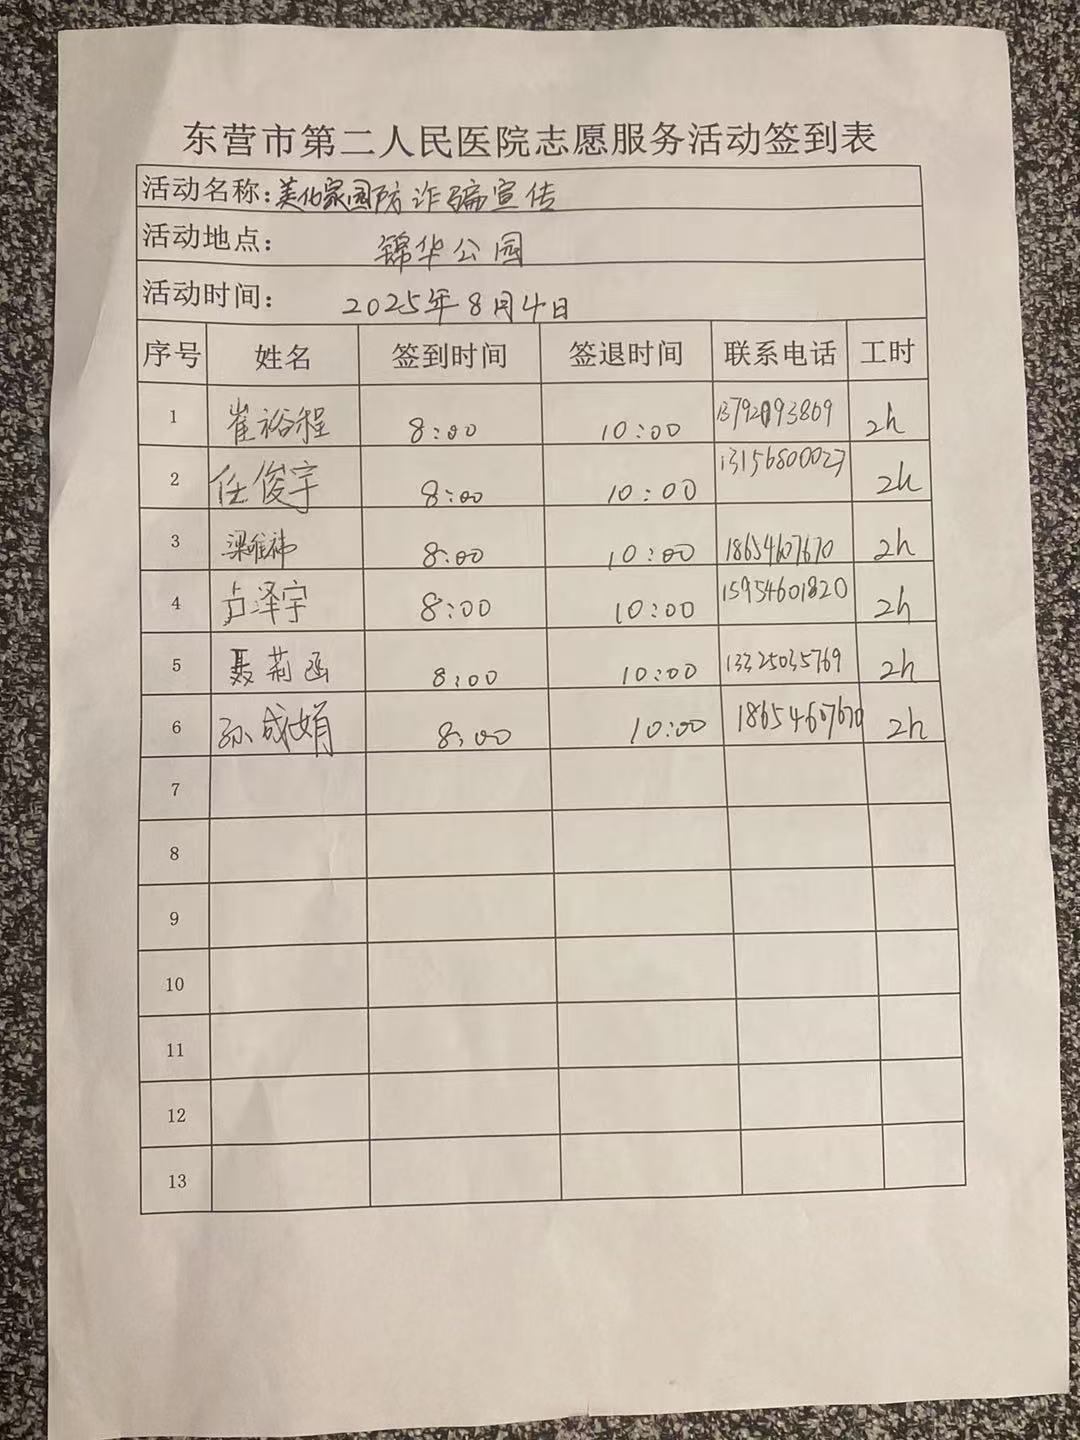 东营市第二人民医院志愿服务活动签到表
活动名称：美化家园防诈骗宣传
活动地点： 锦华公园
活动时间： 2025年8月4日
序号 姓名 签到时间 签退时间 联系电话 工时
1 崔裕程 8:00 10:00 13792093869 2h
2 任俊宇 8:00 10:00 13156800027 2h
3 梁维祎 8:00 10:00 18654607670 2h
4 卢泽宇 8:00 10:00 15954601820 2h
5 聂莉函 8:00 10:00 13325035769 2h
6 孙成娟 8:00 10:00 18654607670 2h
7
8
9
10
11
12
13